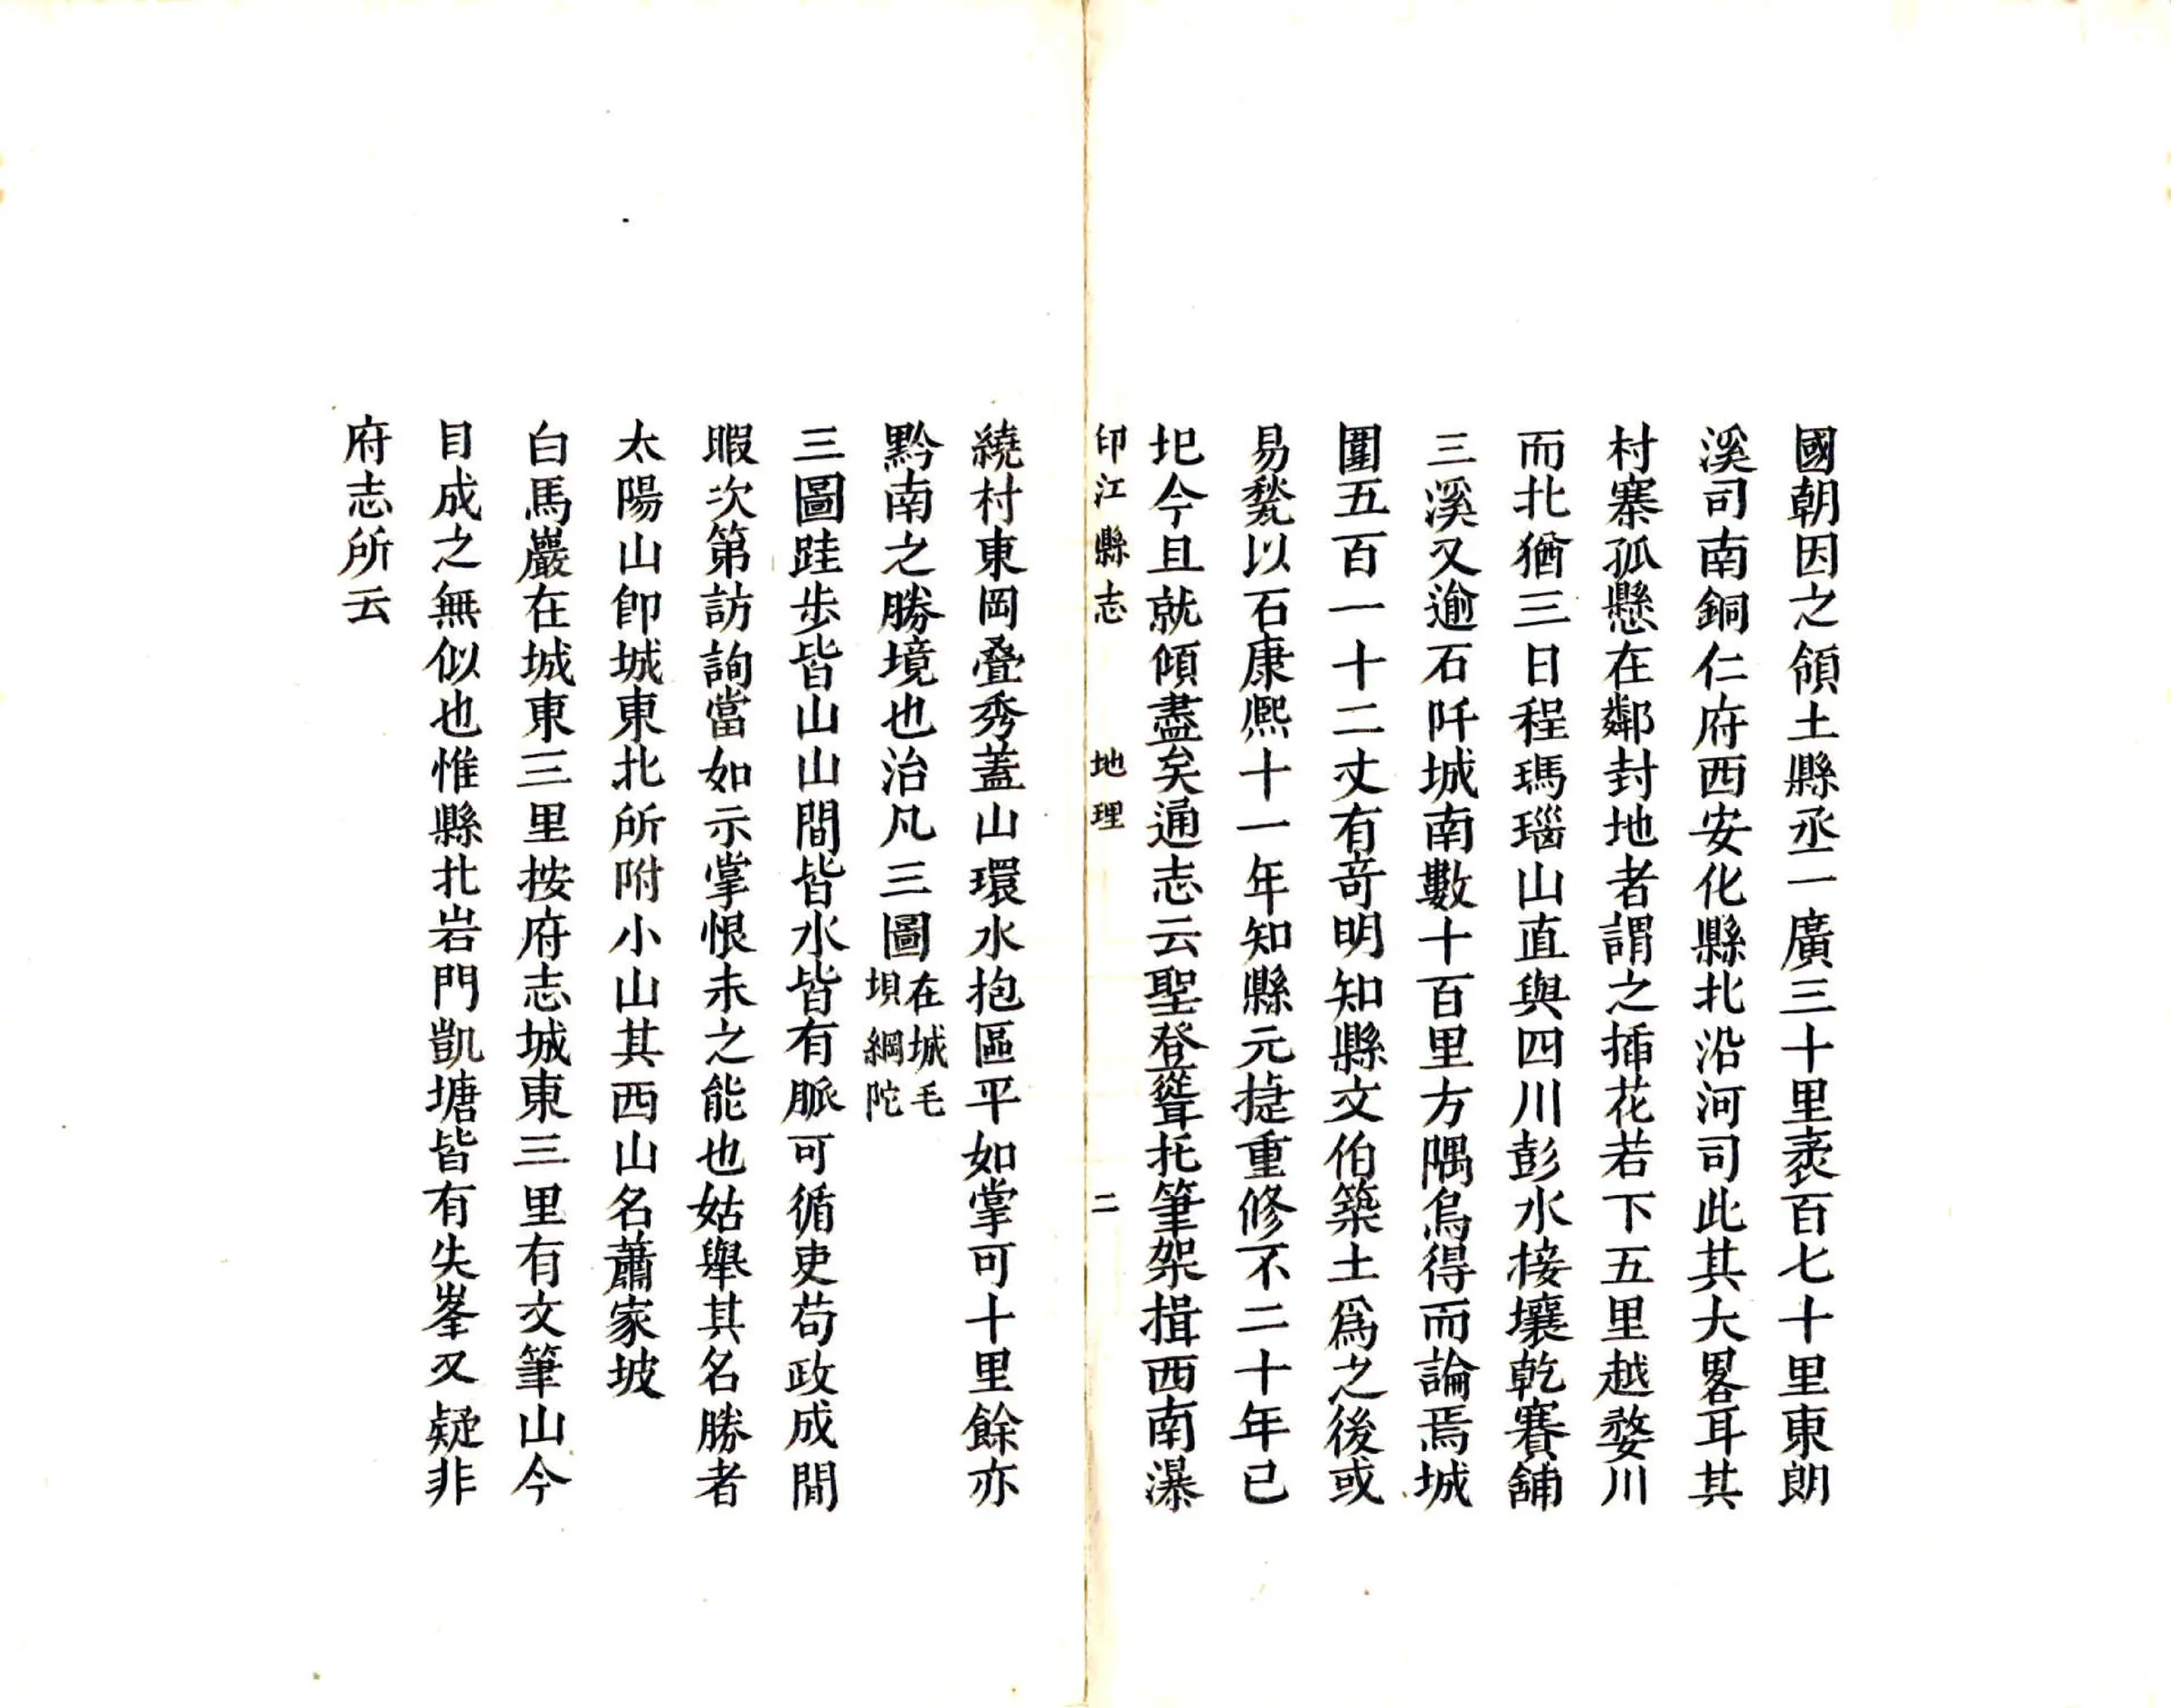 國朝因之領土縣丞一廣三十里袤百七十里東朗
溪司南銅仁府西安化縣北沿河司此其大畧耳其
村寨孤懸在鄰封地者謂之揷花若下五里越婺川
而北猶三日程瑪瑙山直與四川彭水接壤乾賽舖
三溪又逾石阡城南數十百里方隅烏得而論焉城
圍五百一十二丈有竒明知縣文伯築土爲之後或
易甃以石康熈十一年知縣元㨗重修不二十年已
圯今且就傾盡矣通志云聖登聳托筆架揖西南瀑
印江縣志 地理 二
繞村東岡叠秀蓋山環水抱區平如掌可十里餘亦
黔南之勝境也治凡三圖在城毛壩綱陀
三圖跬歩皆山山間皆水皆有脈可循吏苟政成閒
暇次第訪詢當如示掌恨未之能也姑舉其名勝者
太陽山卽城東北所附小山其西山名蕭家坡
白馬巖在城東三里按府志城東三里有文筆山今
目成之無似也惟縣北岩門凱塘皆有尖峯又疑非
府志所云